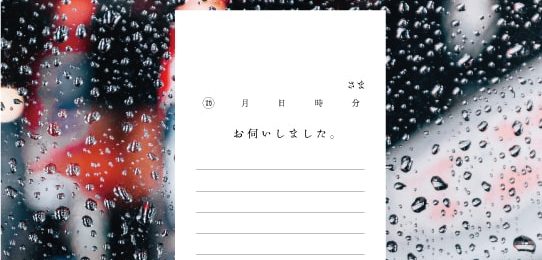 さま
月 日 時 分
お伺いしました。